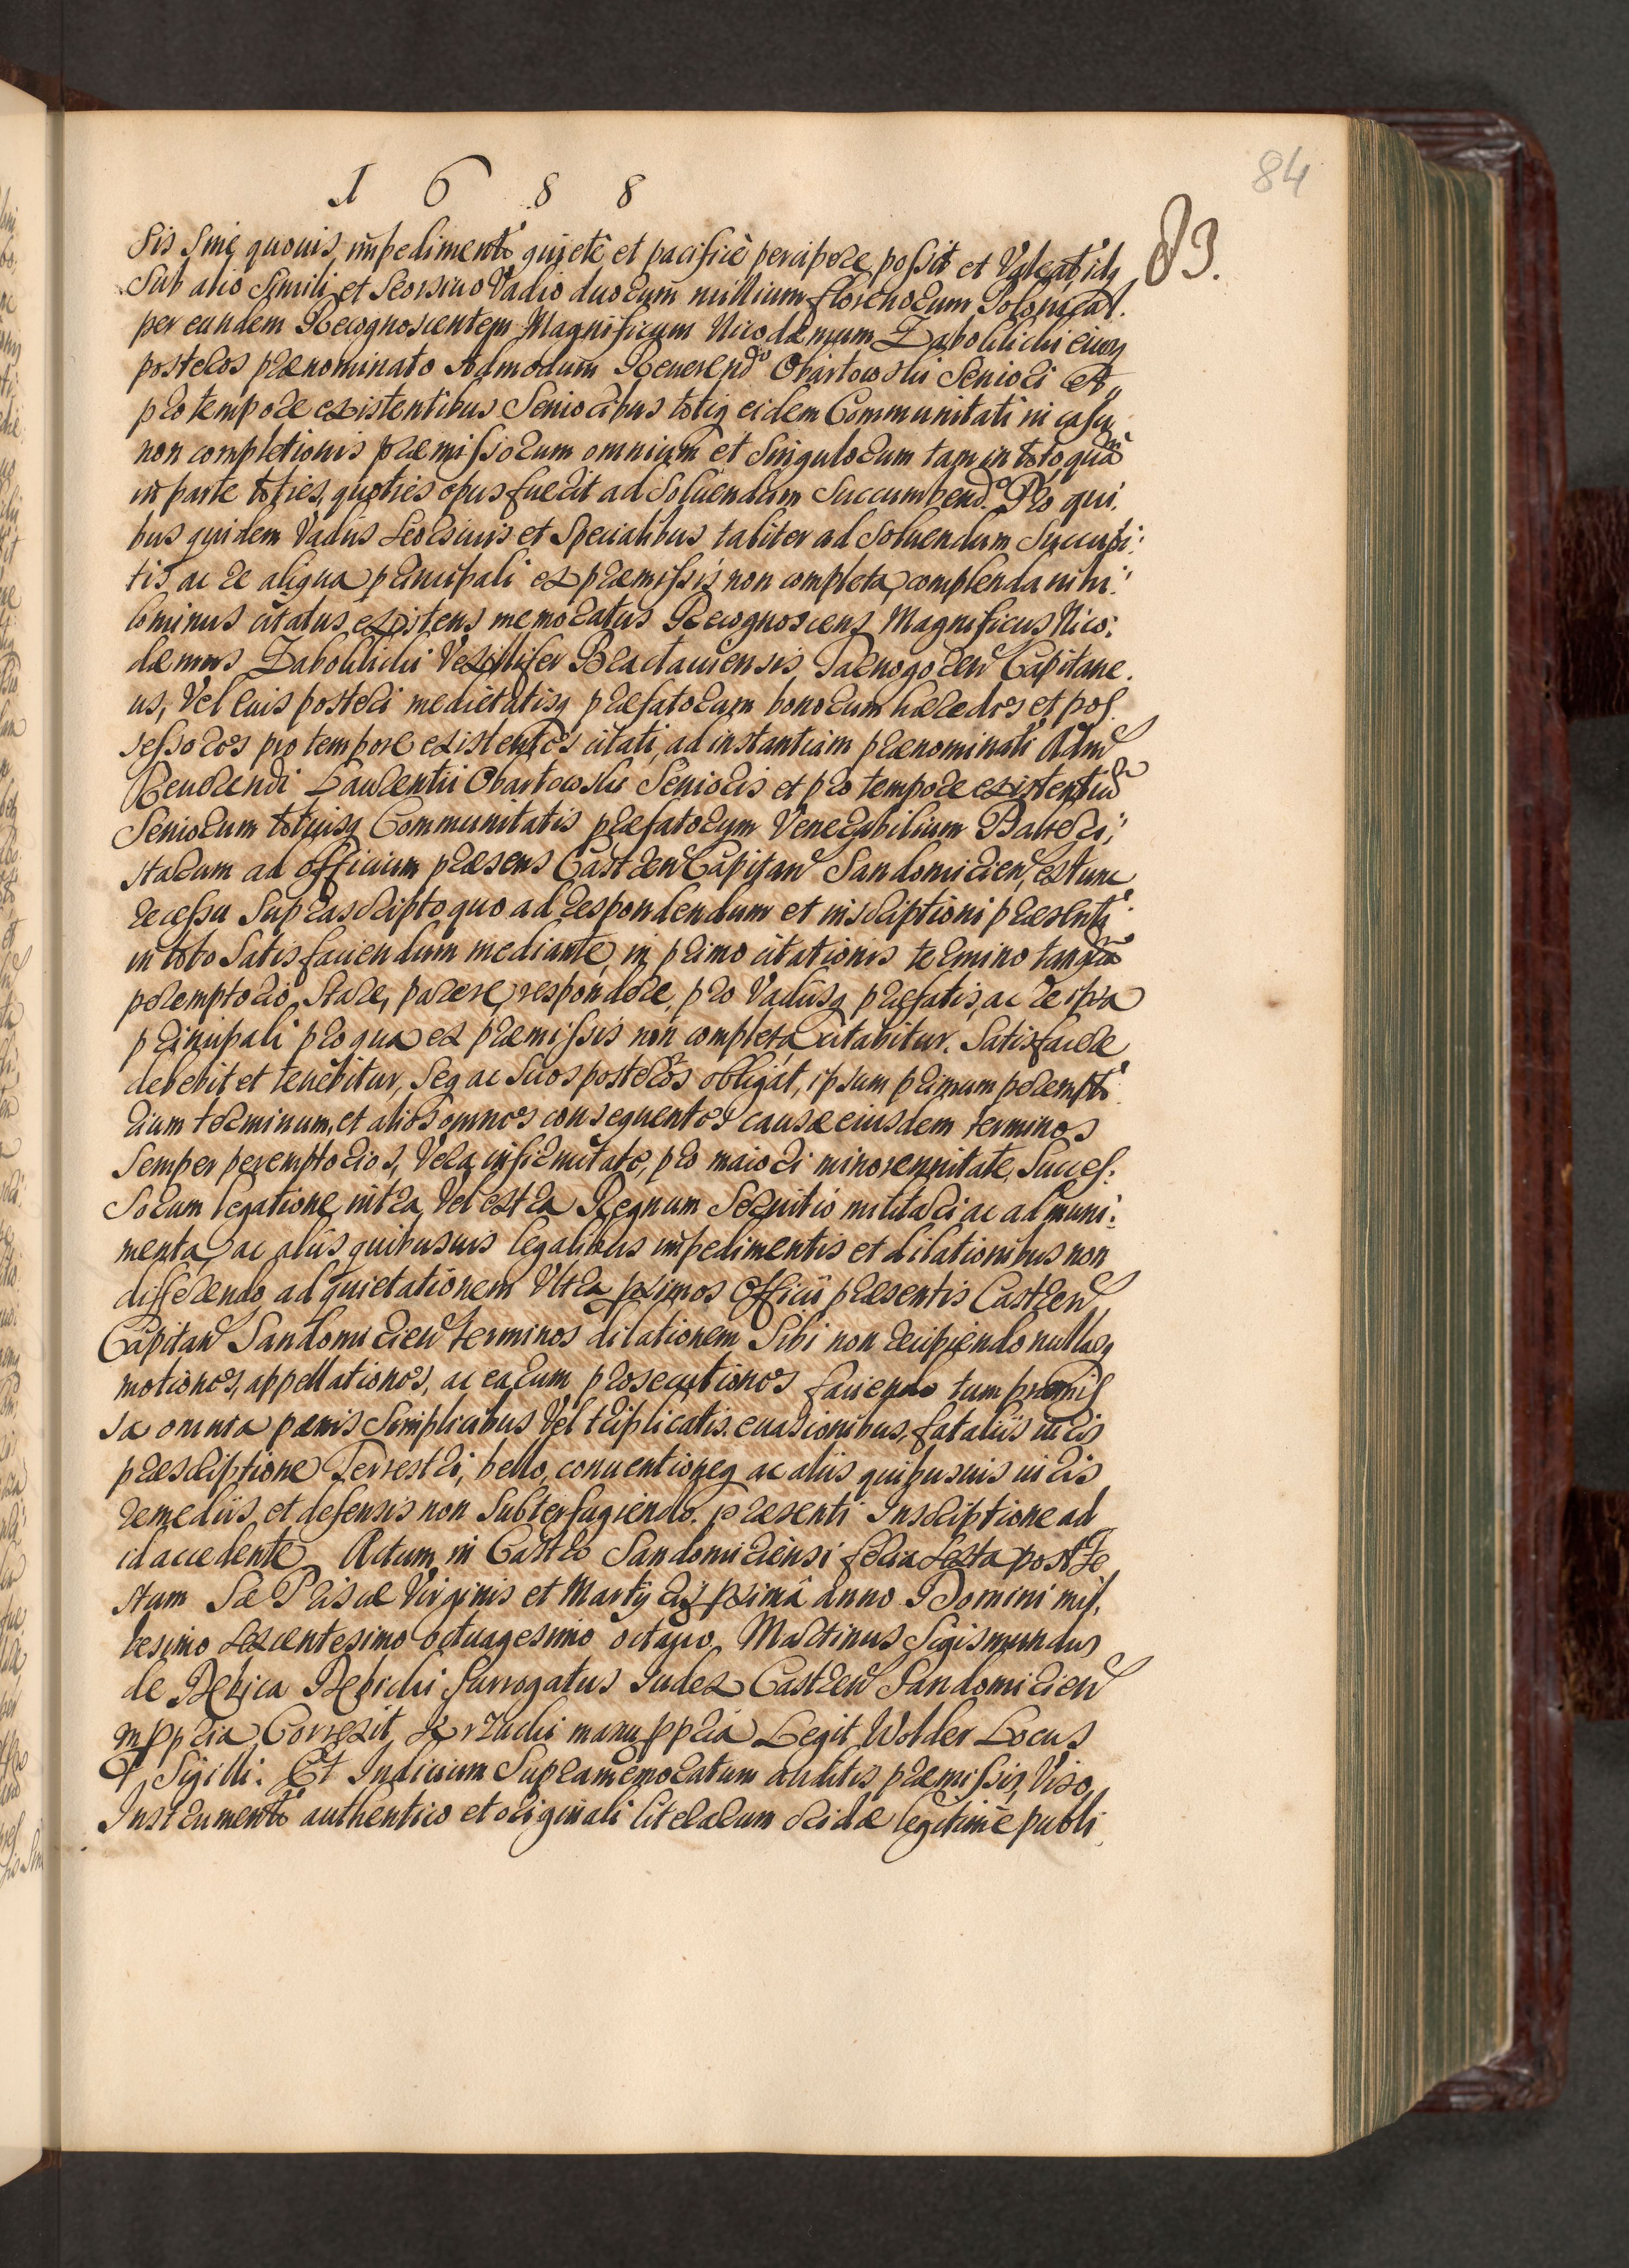 84
1 6 8 8
83.
sis sine quouis impedimento quietè et pacificè percipere possit et Valeat, idq
Sub alio Simili et Seorsiuo Vadio duorum millium florenorum Polonical.
per eundem Recognoscentem Magnificum Nicodæmum Zaboklicki eiusq
posteros prænominato Admodum Reuerendo Obartowski Seniori et
pro tempore existentibus Senioribus totiq eidem Communitati in casu
non completionis præmissorum omnium et Singulorum tam in toto, quàm
in parte toties, quoties opus fuerit ad Soluendum Succumbendo. Pro qui.
bus quidem Vadiis Seorsiuis et Specialibus taliter ad Soluendum Succubi:
tis ac re aliqua principali ex præmissis non completa, complenda nihi:
lominus citatus existens memoratus Recognoscens Magnificus Nico:
dæmus Zaboklicki Vexillifer Braclauiensis Tarnogoren Capitane.
us, Vel euis posteri medietatisq præfatorum bonorum hæredes et pos
sessores pro tempore existentes citati, ad instantiam prænominati Adm
Reuerendi Laurentii Obartowski Senioris et pro tempore existentium
Seniorum totiusq Communitatis præfatorum Venerabilium Balredi;
starum ad officium præsens Castren Capitan Sandomirien, ex tunc
recessu Suprascripto quo ad respondendum et inscriptioni præsenti
in toto Satisfaciendum mediante, in primo citationis termino tanquam
peremptorio, Stare, parere, respondere, pro Vadiisq præfatis, ac re ipsa
principali pro qua ex præmissis non completa citabitur. Satisfacere
debebit et tenebitur, Seq ac Suos posteros obligat, ipsum primum perempto
rium terminum, et alios omnes consequentes causæ eiusdem terminos
Semper peremptorios, Vera infirmitate, pro maiori minorennitate, Succes:
sorum legatione intra, Vel extra Regnum Seruitio militari ac ad muni:
menta, ac aliis quibusuis legalibus impedimentis et dilationibus non
differendo, ad quietationem Vltra primos Officii præsentis Castren
Capitan Sandomirien terminos dilationem Sibi non recipiendo nullasq
motiones, appellationes, ac earum prosecutiones faciendo tum præmis
sa omnia pænis Simplicibus Vel triplicatis. euasionibus, fataliis iuris
præscriptione Terrestri, bello, conuentioneq ac aliis quibusuis iuris
remediis, et defensis non Subterfugiendo. præsenti Inscriptione ad
id accedente. Actum in Castro Sandomiriensi feria Sexta post Fe
stum Sæ Priscæ Virginis et Martyris primâ anno Domini mil,
lesimo Sexcentesimo octuagesimo octauo. Martinus Sigismundus
de Dębica Dębicki Surrogatus Iudex Castren Sandomirien
mppria, Correxit manu ppria Legit Wolder Locus
Sigilli. Et Iudicium Supramemoratum auditis præmissis, Viso,
Instrumento authentico et originali literarum scidæ legitimè publi